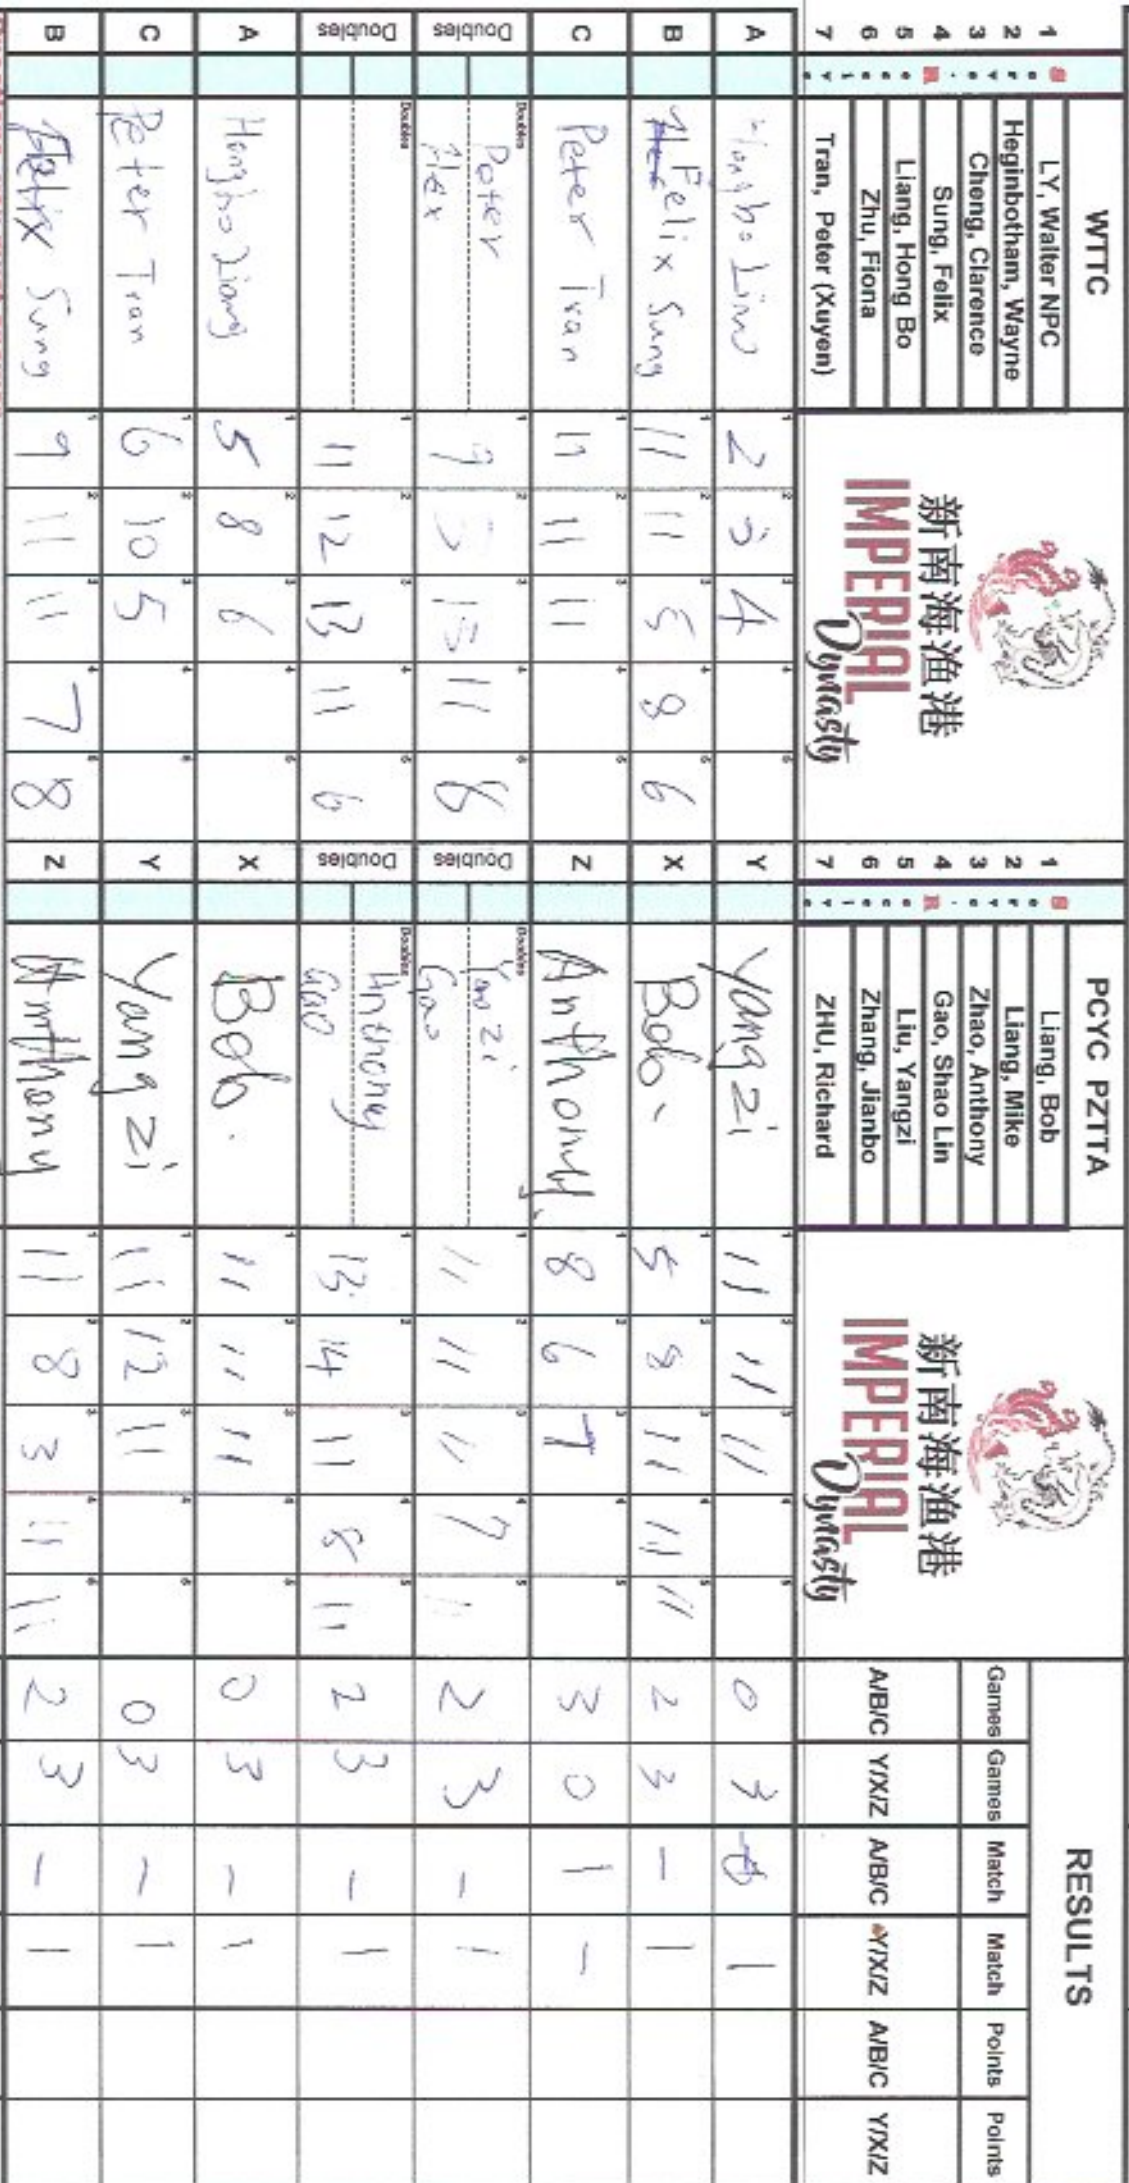 WTTC
1 LY, Walter NPC
2 Heginbotham, Wayne
3 Cheng, Clarence
4 Sung, Felix
5 Liang, Hong Bo
6 Zhu, Fiona
7 Tran, Peter (Xuyen)
新南海渔港
IMPERIAL
Dynasty
PCYC PZTTA
1 Liang, Bob
2 Liang, Mike
3 Zhao, Anthony
4 Gao, Shao Lin
5 Liu, Yangzi
6 Zhang, Jianbo
7 ZHU, Richard
新南海渔港
IMPERIAL
Dynasty
RESULTS
Games Games Match Match Points Points
A/B/C Y/X/Z A/B/C Y/X/Z A/B/C Y/X/Z
A 2 4 Y Yangzi 11 11 11 0 3 1
B Felix Sung 11 11 5 8 6 X Bob 5 8 11 11 11 2 3 - 1
C Peter Tran 11 11 11 Z Anthony 8 6 7 3 0 1 -
Doubles Doubles Peter 9 11 8 Doubles Doubles 11 11 11 7 11 2 3 - 1
Gao
Doubles Doubles 11 12 13 11 6 Doubles Doubles Anthoney 13 14 11 8 11 2 3 - 1
Gao
A Hongbo Liang 5 8 6 X Bob. 11 11 11 0 3 - 1
C Peter Tran 6 10 5 Y Yangzi 11 12 11 0 3 - 1
B Felix Sung 9 11 11 7 8 Z Anthony 11 8 3 11 11 2 3 - 1